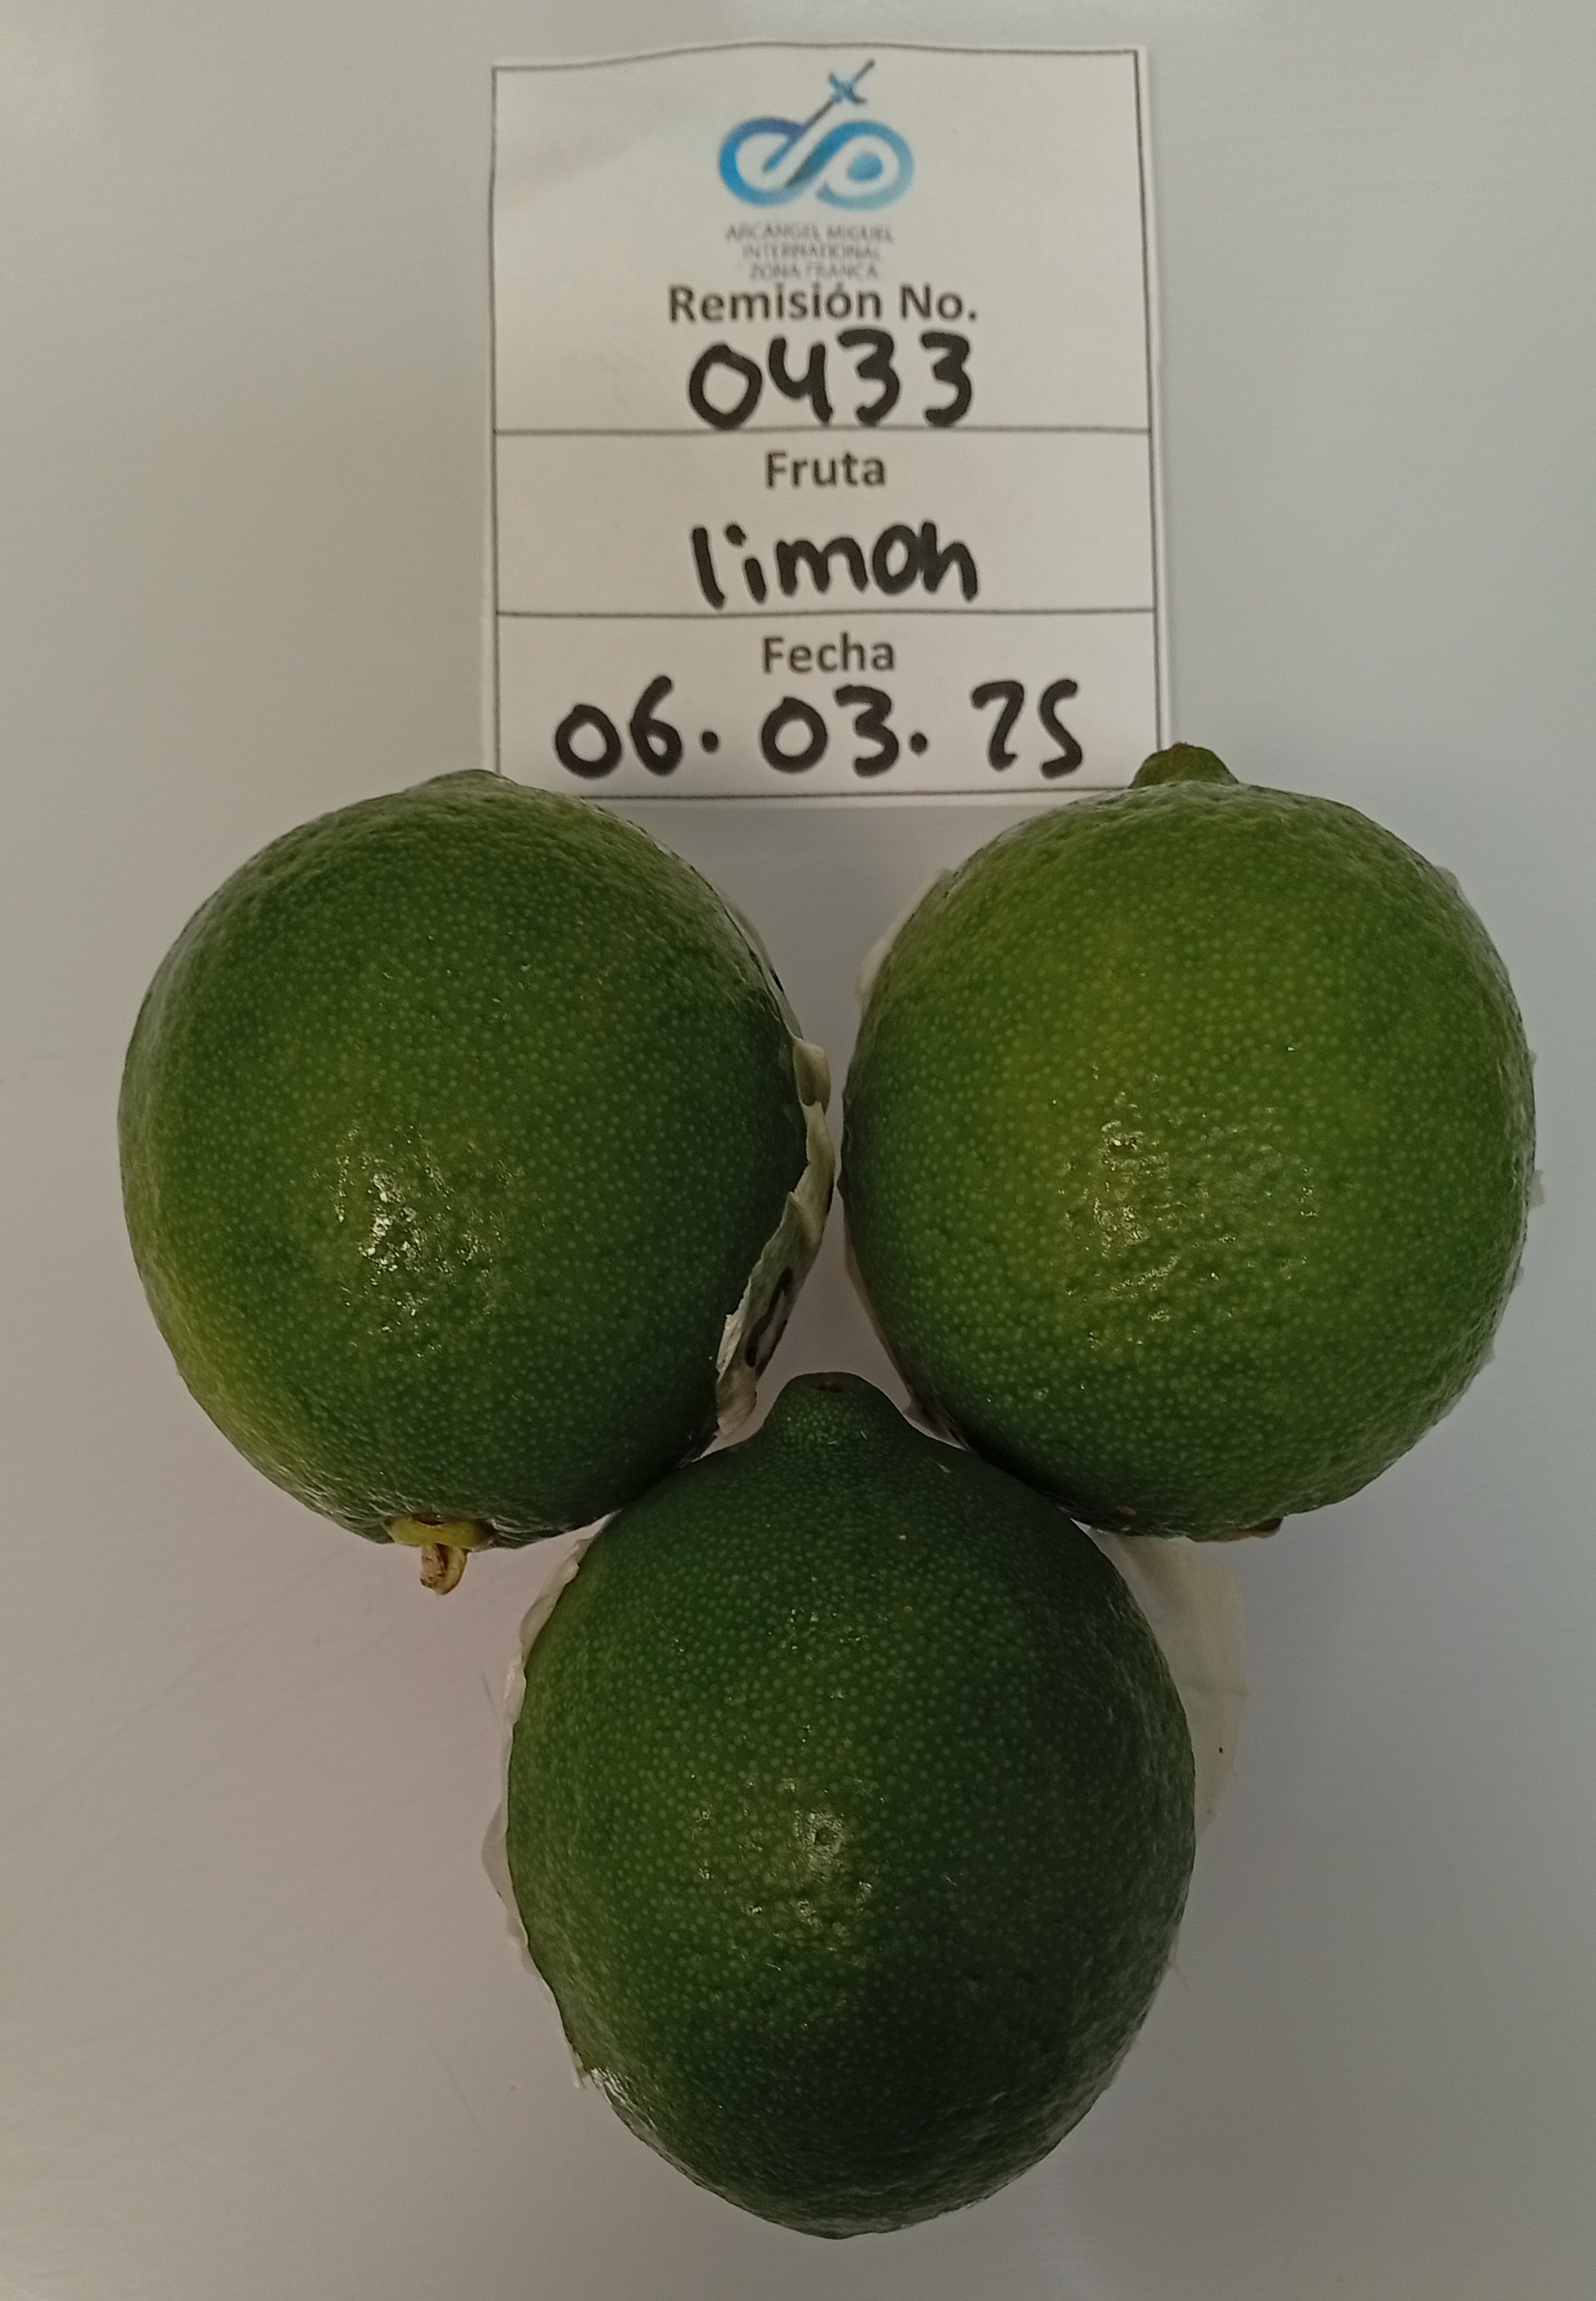 ARCANGEL MIGUEL
INTERNATIONAL
ZONA FRANCA
Remisión No.
0433
Fruta
limon
Fecha
06.03.25